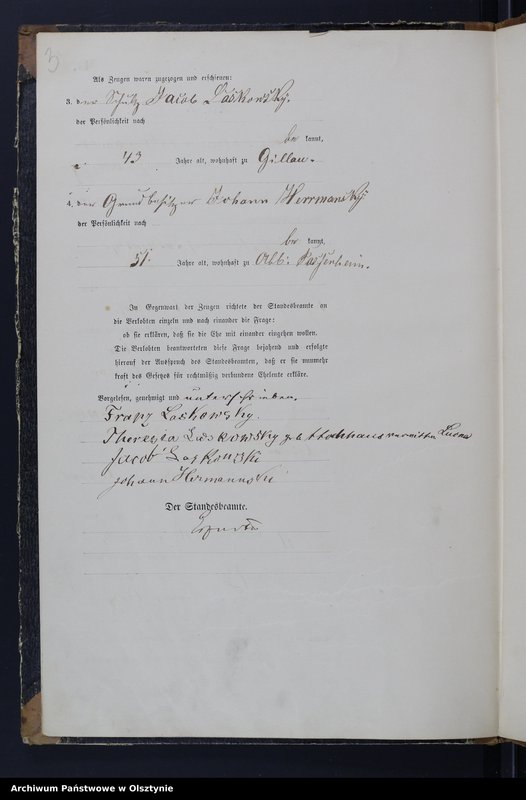 3
Als Zeugen waren zugezogen und erschienen:
3. der Schulz Jacob Laskowsky.
der Persönlichkeit nach
be kannt,
43 Jahre alt, wohnhaft zu Gillau.
4. der Grundbesitzer Johann Herrmansky
der Persönlichkeit nach
be kannt,
51 Jahre alt, wohnhaft zu Abb: Passenheim.
In Gegenwart der Zeugen richtete der Standesbeamte an
die Verlobten einzeln und nach einander die Frage:
ob sie erklären, daß sie die Ehe mit einander eingehen wollen.
Die Verlobten beantworteten diese Frage bejahend und erfolgte
hierauf der Ausspruch des Standesbeamten, daß er sie nunmehr
kraft des Gesetzes für rechtmäßig verbundene Eheleute erkläre.
Vorgelesen, genehmigt und unterschrieben.
Franz Laskowsky.
Theresia Laskowsky geb
Jacob Laskowski
Johann Hermannski
Der Standesbeamte.
Archiwum Państwowe w Olsztynie